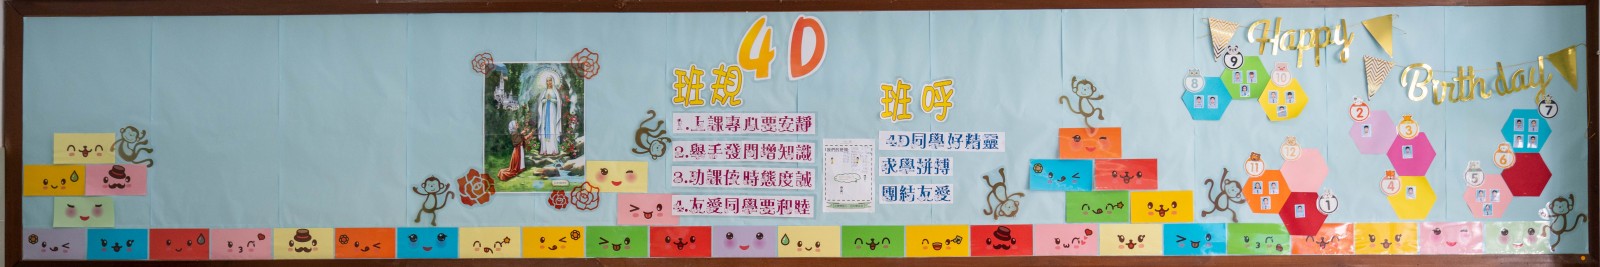 4D
班規
1.上課專心要安靜
2.舉手發問增知識
3.功課依時態度誠
4.友愛同學要和睦
班呼
4D同學好精靈
求學拼搏
團結友愛
Happy
Birthday
8
9
10
11
12
1
2
3
4
5
6
7